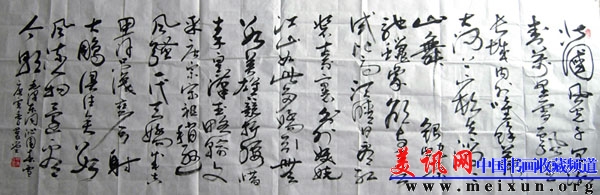 北國風光千里冰
封萬里雪飄望
長城內外唯餘莽
大河上下頓失滔
山舞銀蛇原
馳蠟象欲與天公
試比高須晴日看紅
裝素裹分外妖嬈
江山如此多嬌引無
數英雄競折腰惜
秦皇漢武略輸文
采唐宗宋祖稍遜
風騷一代天驕成吉
思汗只識彎弓射
大鵰俱往矣數
風流人物還看
今朝
毛澤東詞沁園春雪
庚寅
美讯网 中国书画收藏频道
www.meixun.org